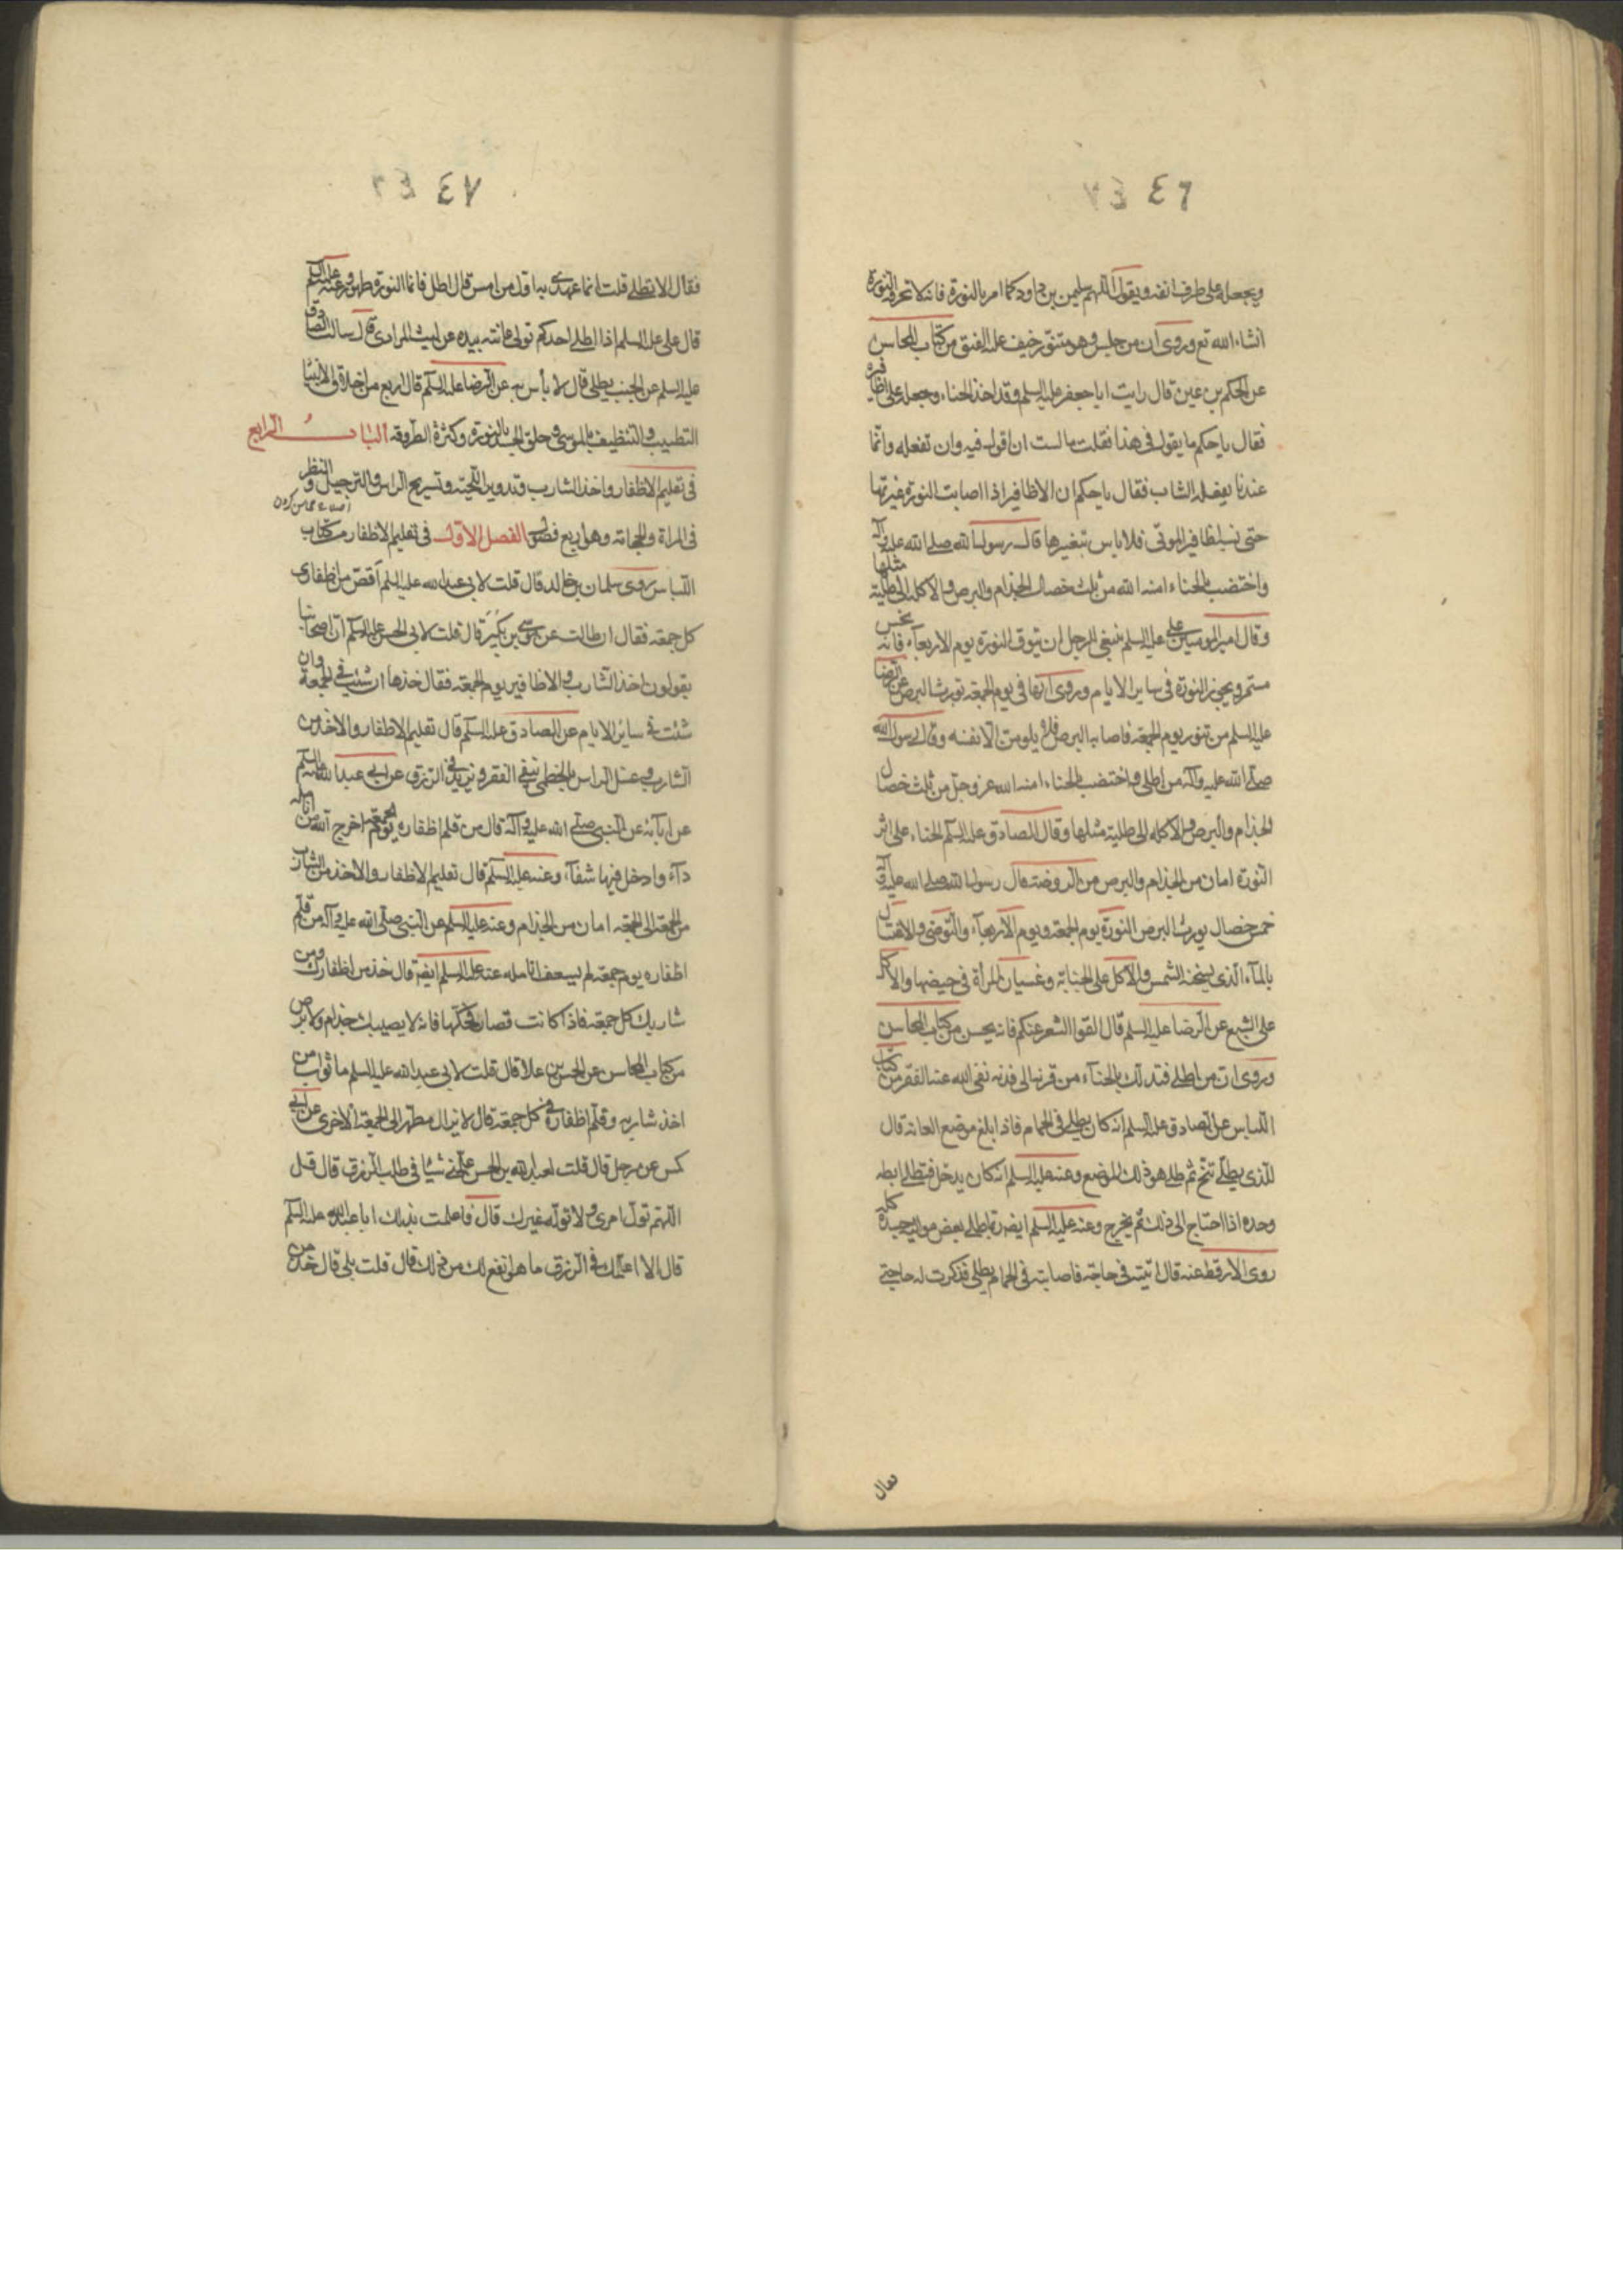 ٤٦
ويجعله على طرف انفه ويقول اللهم ارحم سليمن بن داود كما امر بالنورة فانه لا تحرقه النورة
انشاء الله تع وروى ان من جلس وهو متنور خيف عليه الفتق من كتاب المحاسن
عن الحكم بن عيينة قال رايت ابا جعفر عليه السلم وقد اخذ الحناء وجعله على اظافيره
فقال يا حكم ما يقول في هذا فقلت ما عسيت ان اقول فيه وان تفعله وانما
عندنا يفعله الشاب فقال يا حكم ان الاظافير اذا اصابت النورة غيرتها
حتى تشبه اظافير الموتى فلا باس بتغيرها قال رسول الله صلى الله عليه وآله
واختضب بالحناء امنه الله من ثلث خصال الجذام والبرص والاكلة الى طلية مثلها
وقال امير المومنين على عليه السلم ينبغى للرجل ان يتوق النورة يوم الاربعاء فانه نحس
مستمر ويجوز النورة في ساير الايام وروى انها في يوم الجمعة تورث البرص عن الرضا
عليه السلم من تنور يوم الجمعة فاصابه البرص فلا يلومن الا نفسه وقال رسول الله
صلى الله عليه وآله من اطلى واختضب بالحناء امنه الله عز وجل من ثلث خصال
الجذام والبرص والاكلة الى طلية مثلها وقال الصادق عليه السلم الحناء على اثر
النورة امان من الجذام والبرص من الروضة قال رسول الله صلى الله عليه وآله
خمس خصال يورث البرص النورة يوم الجمعة ويوم الاربعاء والتوضى والاغتسال
بالماء الذى يسخنه الشمس والاكل على الجنابة وغشيان المرأة في حيضها والاكل
على الشبع عن الرضا عليه السلم قال القوا الشعر عنكم فانه يحسن من كتاب المحاسن
وروى ان من اطلى فتدلك بالحناء من قرنه الى قدمه نفى الله عنه الفقر من كتاب
اللباس عن الصادق عليه السلم انه كان يطلى في الحمام فاذا بلغ موضع العانة قال
للذى يطلى تنح ثم طلى هو ذلك الموضع وعنه عليه السلم انه كان يدخل فيطلى ابطه
وحده اذا احتاج الى ذلك ثم يخرج وعنه عليه السلم ايضه ربما طلى بعض مواليه جسده كله
روى الارقط عنه قال اتيته في حاجة فاصابته في الحمام يطلى فذكرت له حاجتي
فقال
٤٧
فقال الا تطلى قلت انما عهدى به اول من امس قال اطل فانما النورة طهور وعنه عليه السلم
قال على عليه السلم اذا اطلى احدكم تولى عانته بيده عن ليث المرادى قال سالت الصادق
عليه السلم عن الجنب يطلى قال لا بأس به عن الرضا عليه السلم قال اربع من اخلاق الانبيا
التطيب والتنظيف بالموسى وحلق الجسد بالنورة وكثرة الطروقة الباب الرابع
في تقليم الاظفار واخذ الشارب وتدوير اللحية وتسريح الراس والترجيل والنظر
في المراة والحجامة وهو اربع فصول الفصل الاول في تقليم الاظفار من كتاب
اللباس روى سلمان بن خالد قال قلت لابى عبد الله عليه السلم اقص من اظفارى
كل جمعة فقال ان طالت عن موسى بن بكير قال قلت لابى الحسن عليه السلم ان اصحابنا
يقولون اخذ الشارب والاظافير يوم الجمعة فقال خذها ان شئت في الجمعة وان
شئت في سائر الايام عن الصادق عليه السلم قال تقليم الاظفار والاخذ من
الشارب وغسل الراس بالخطمى ينفى الفقر ويزيد في الرزق عن ابى عبد الله عليه السلم
عن ابآئه عن النبى صلى الله عليه وآله قال من قلم اظفاره يوم الجمعة اخرج الله من انامله
دآء وادخل فيها شفآء وعنه عليه السلم قال تقليم الاظفار والاخذ من الشارب
من الجمعة الى الجمعة امان من الجذام وعنه عليه السلم عن النبى صلى الله عليه وآله من قلم
اظفاره يوم جمعة لم يسعف انامله عنه عليه السلم ايضه قال خذ من اظفارك ومن
شاربك كل جمعة فاذا كانت قصارا فحكها فانه لا يصيبك جذام ولا برص
من كتاب المحاسن عن الحسين بن علا قال قلت لابى عبد الله عليه السلم ما ثواب من
اخذ شاربه وقلم اظفاره في كل جمعة قال لا يزال مطهرا الى الجمعة الاخرى عن ابى
كمس عن رجل قال قلت لعبد الله بن الحسن علمنى شيئا في طلب الرزق قال قل
اللهم تول امرى ولا توله غيرك قال فاعلمت بذلك ابا عبد الله عليه السلم
قال الا اعلمك في الرزق ما هو انفع لك من ذلك قال قلت بلى قال خذ من